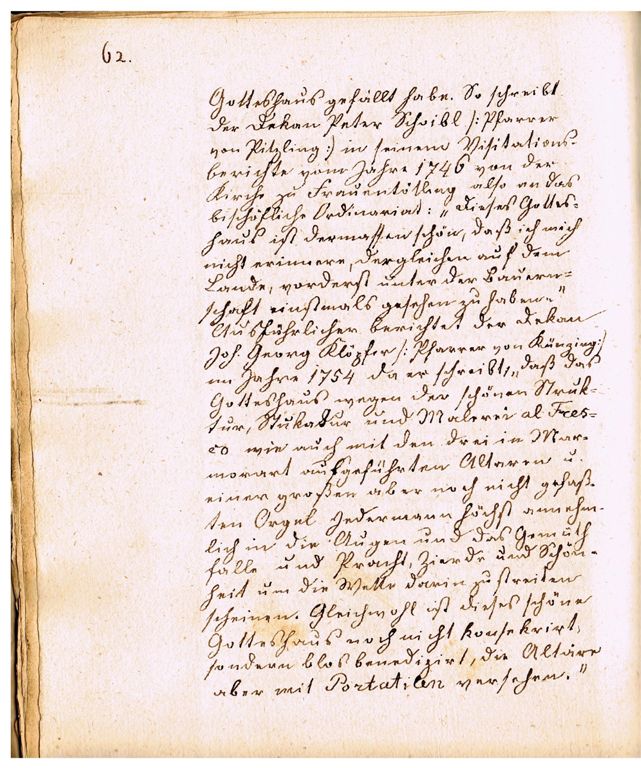 62.
Gotteshaus gefällt habe. So schreibt
der Dekan Peter Schoibl /: Pfarrer
von Pitzling :/ in seinem Visitations-
berichte vom Jahre 1746 von der
Kirche zu Frauentödling also an das
bischöfliche Ordinariat: „Dieses Gottes-
haus ist dermassen schön, daß ich mich
nicht erinnere, dergleichen auf dem
Lande, vorderst unter der Bauern-
schaft einstmals gesehen zu haben."
Ausführlicher berichtet der Dekan
Joh. Georg Klöpfer /: Pfarrer von Künzing :/
im Jahre 1754 da er schreibt, „daß das
Gotteshaus wegen der schönen Struk-
tur, Stukadur und Malerei al Fres-
co wie auch mit den drei in Mar-
morart aufgeführten Altaren u.
einer großen aber noch nicht gefaß-
ten Orgel Jedermann höchst annehm-
lich in die Augen und das Gemüth
falle und Pracht, Zierde und Schön-
heit um die Wette darin zu streiten
scheinen. Gleichwohl ist dieses schöne
Gotteshaus noch nicht konsekrirt,
sondern blos benedizirt, die Altäre
aber mit Portatilen versehen."